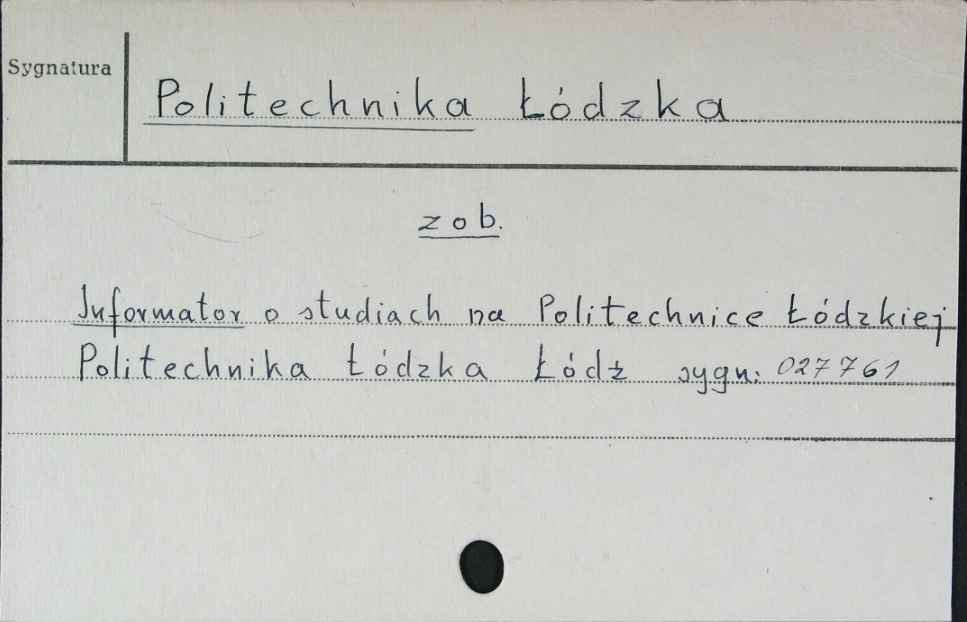 Sygnatura
Politechnika Łódzka
zob.
Informator o studiach na Politechnice Łódzkiej
Politechnika Łódzka Łódź sygn: 027761